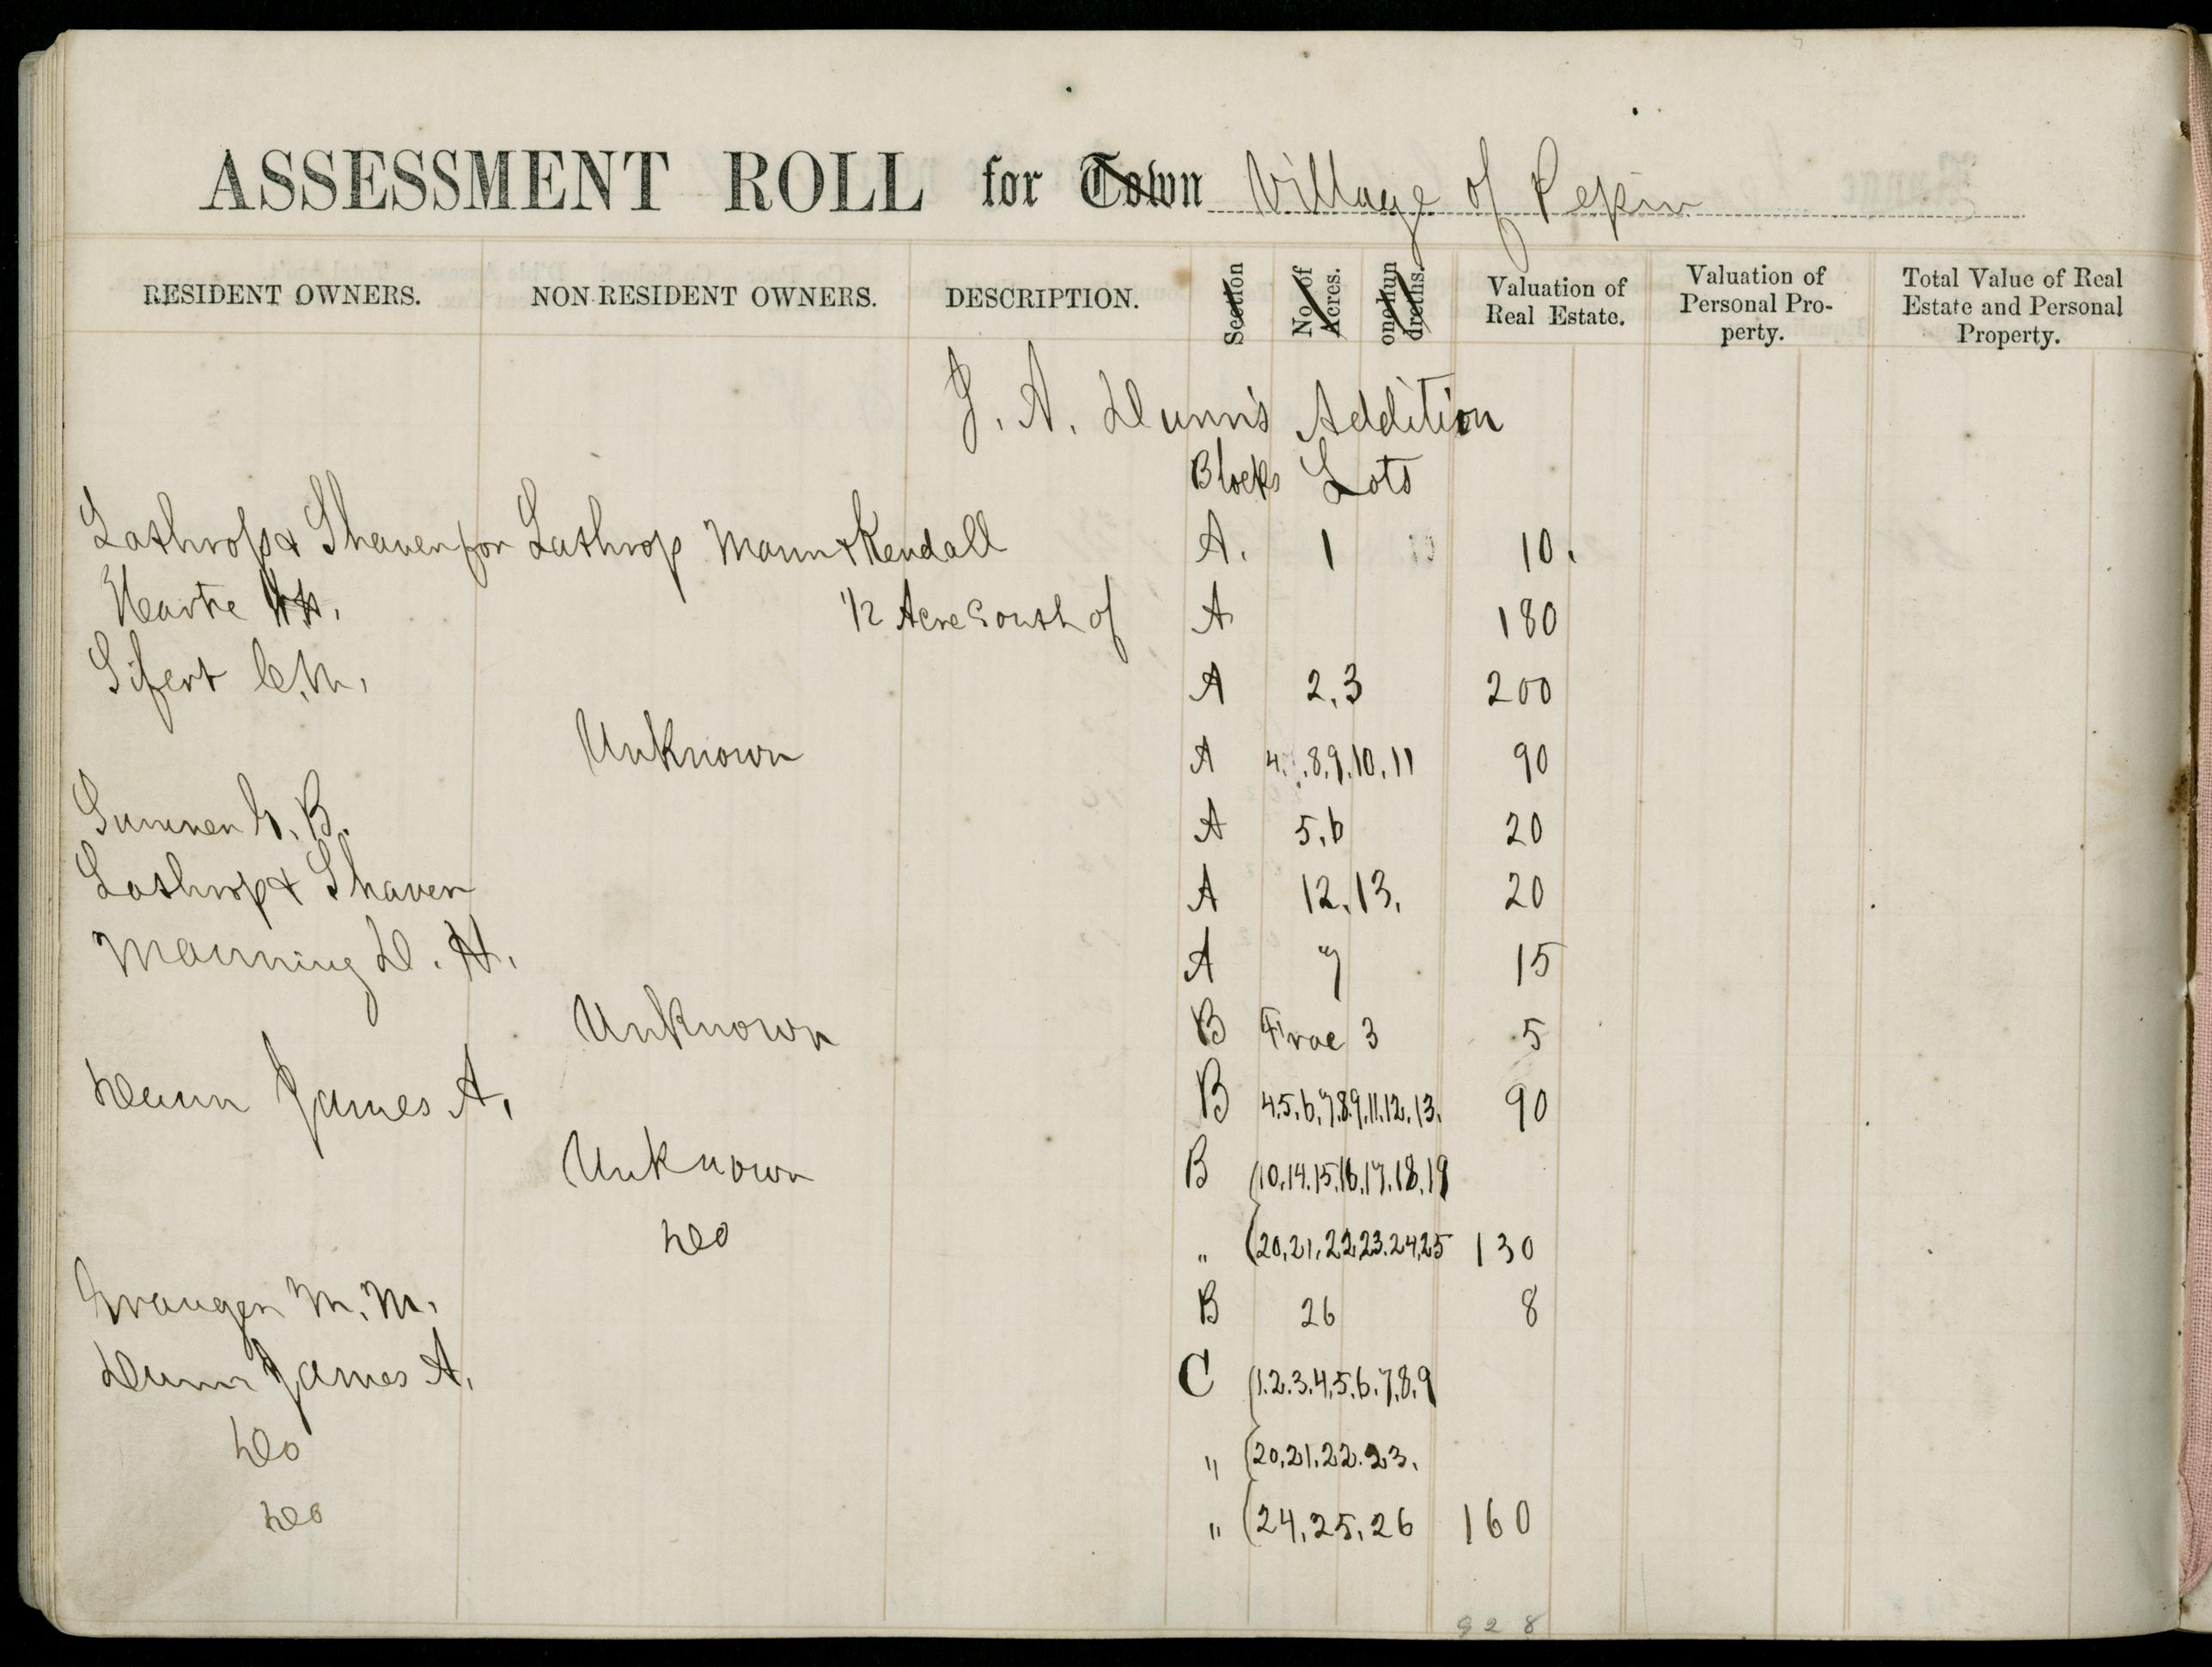 ASSESSMENT ROLL for Town Village of Pepin
RESIDENT OWNERS. NON-RESIDENT OWNERS. DESCRIPTION. Section No. of Acres. one-hundredths. Valuation of Real Estate. Valuation of Personal Property. Total Value of Real Estate and Personal Property.
J. A. Dunn's Addition
Blocks Lots
Lathrop & Thaven for Lathrop Mann & Kendall A. 1 10.
1/2 Acre South of A 180
Sifert C.M. A 2,3 200
Unknown A 4, 8,9,10,11 90
Sumner G. B. A 5,6 20
Lathrop & Thaven A 12,13, 20
Manning D. H. A 7 15
Unknown B Frac 3 5
Dunn James A. B 4,5,6,7,8,9,11,12,13, 90
Unknown B (10,14,15,16,17,18,19
Do " (20,21,22,23,24,25 130
Granger M. M. B 26 8
Dunn James A. C (1.2.3.4.5.6.7.8.9
Do " (20,21,22.23.
Do " (24,25,26 160
928